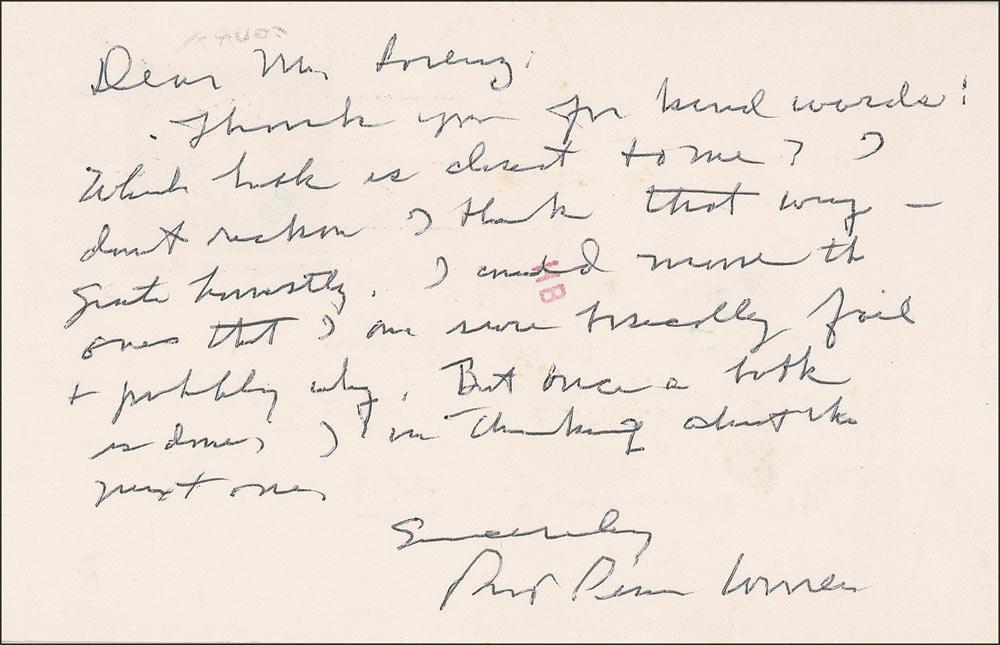 Dear Mr. Lorenz:
Thank you for kind words!
Which book is closest to me? I
don't reckon I think that way —
quite honestly. I could name the
ones that I am sure basically fail
+ probably why. But once a book
is done, I'm thinking about the
next one.
Sincerely
Robt Penn Warren
MB